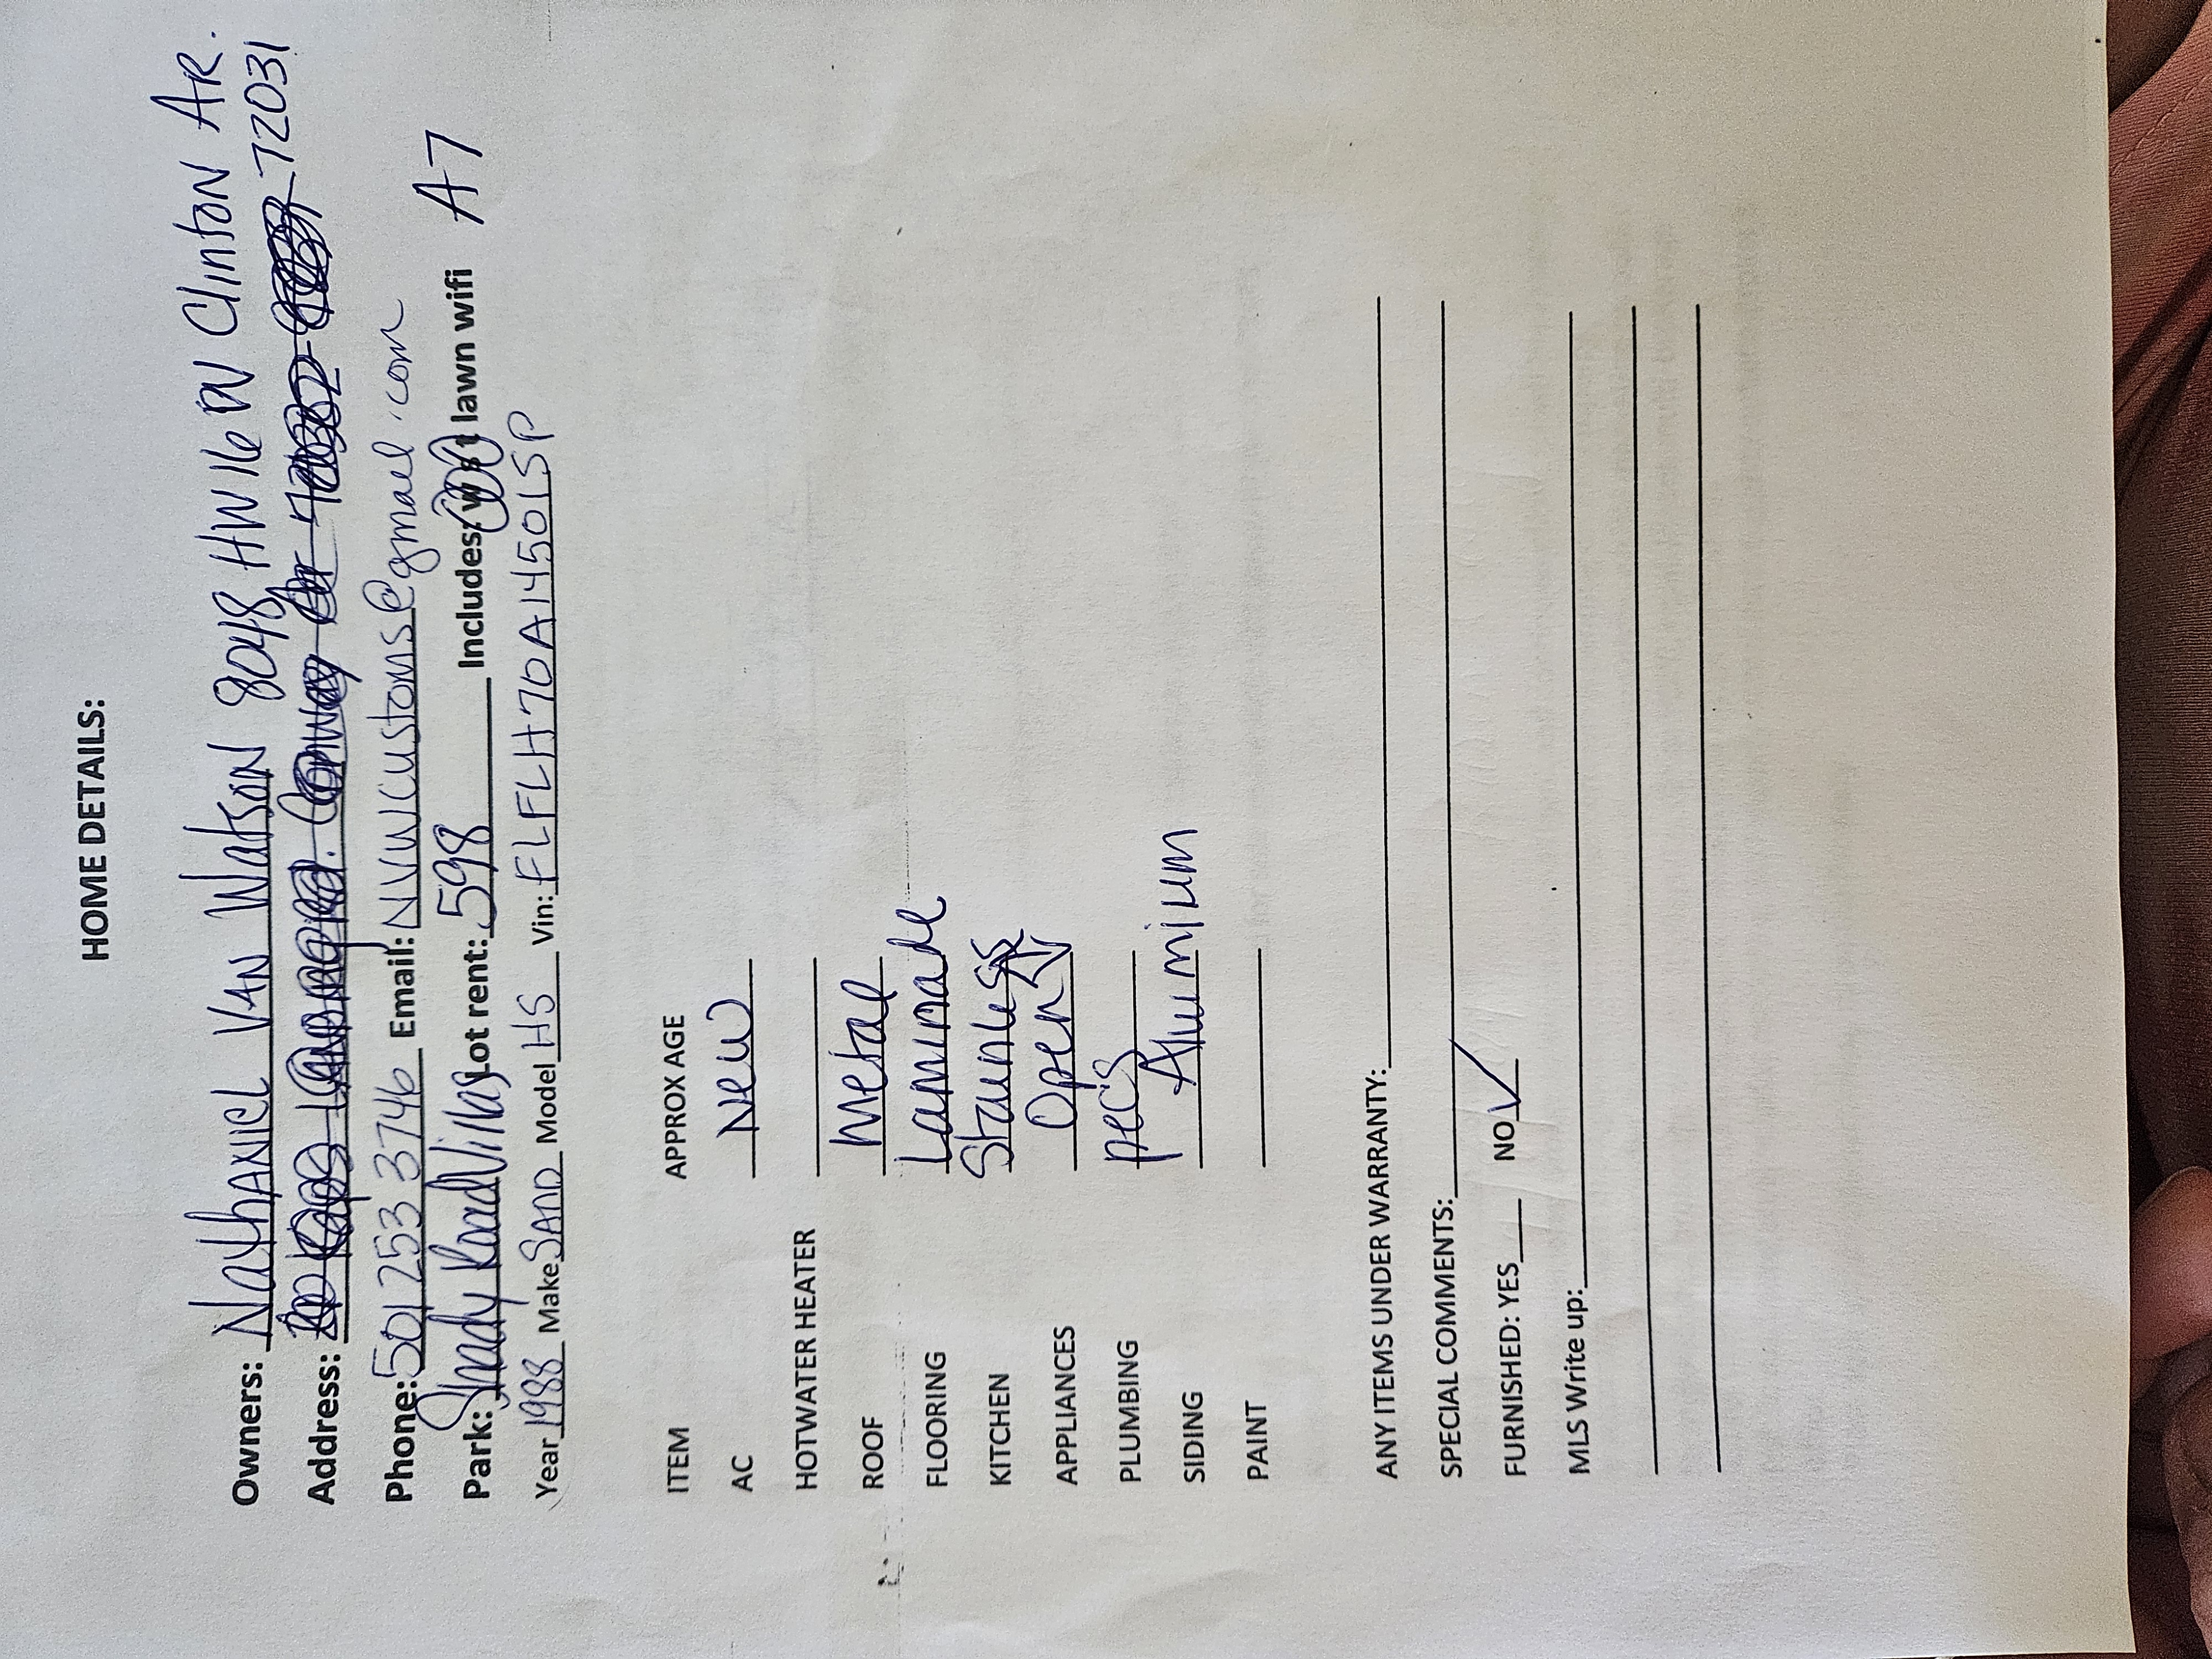 HOME DETAILS:
Owners: Nathaniel Van Watson 8048 HW 16 W Clinton AR.
Address: 72031
Phone: 501 253 3746 Email: NVWCustoms@gmail.com
Park: Shady Road Villas Lot rent: 598 Includes: w s t lawn wifi A7
Year 1988 Make SAND Model HS Vin: FLFLH70A14501SP
ITEM APPROX AGE
AC New
HOTWATER HEATER
ROOF Metal
FLOORING Laminate
KITCHEN Stainless
APPLIANCES Open
PLUMBING pecs
SIDING Alumnium
PAINT
ANY ITEMS UNDER WARRANTY:
SPECIAL COMMENTS:
FURNISHED: YES NO ✓
MLS Write up: